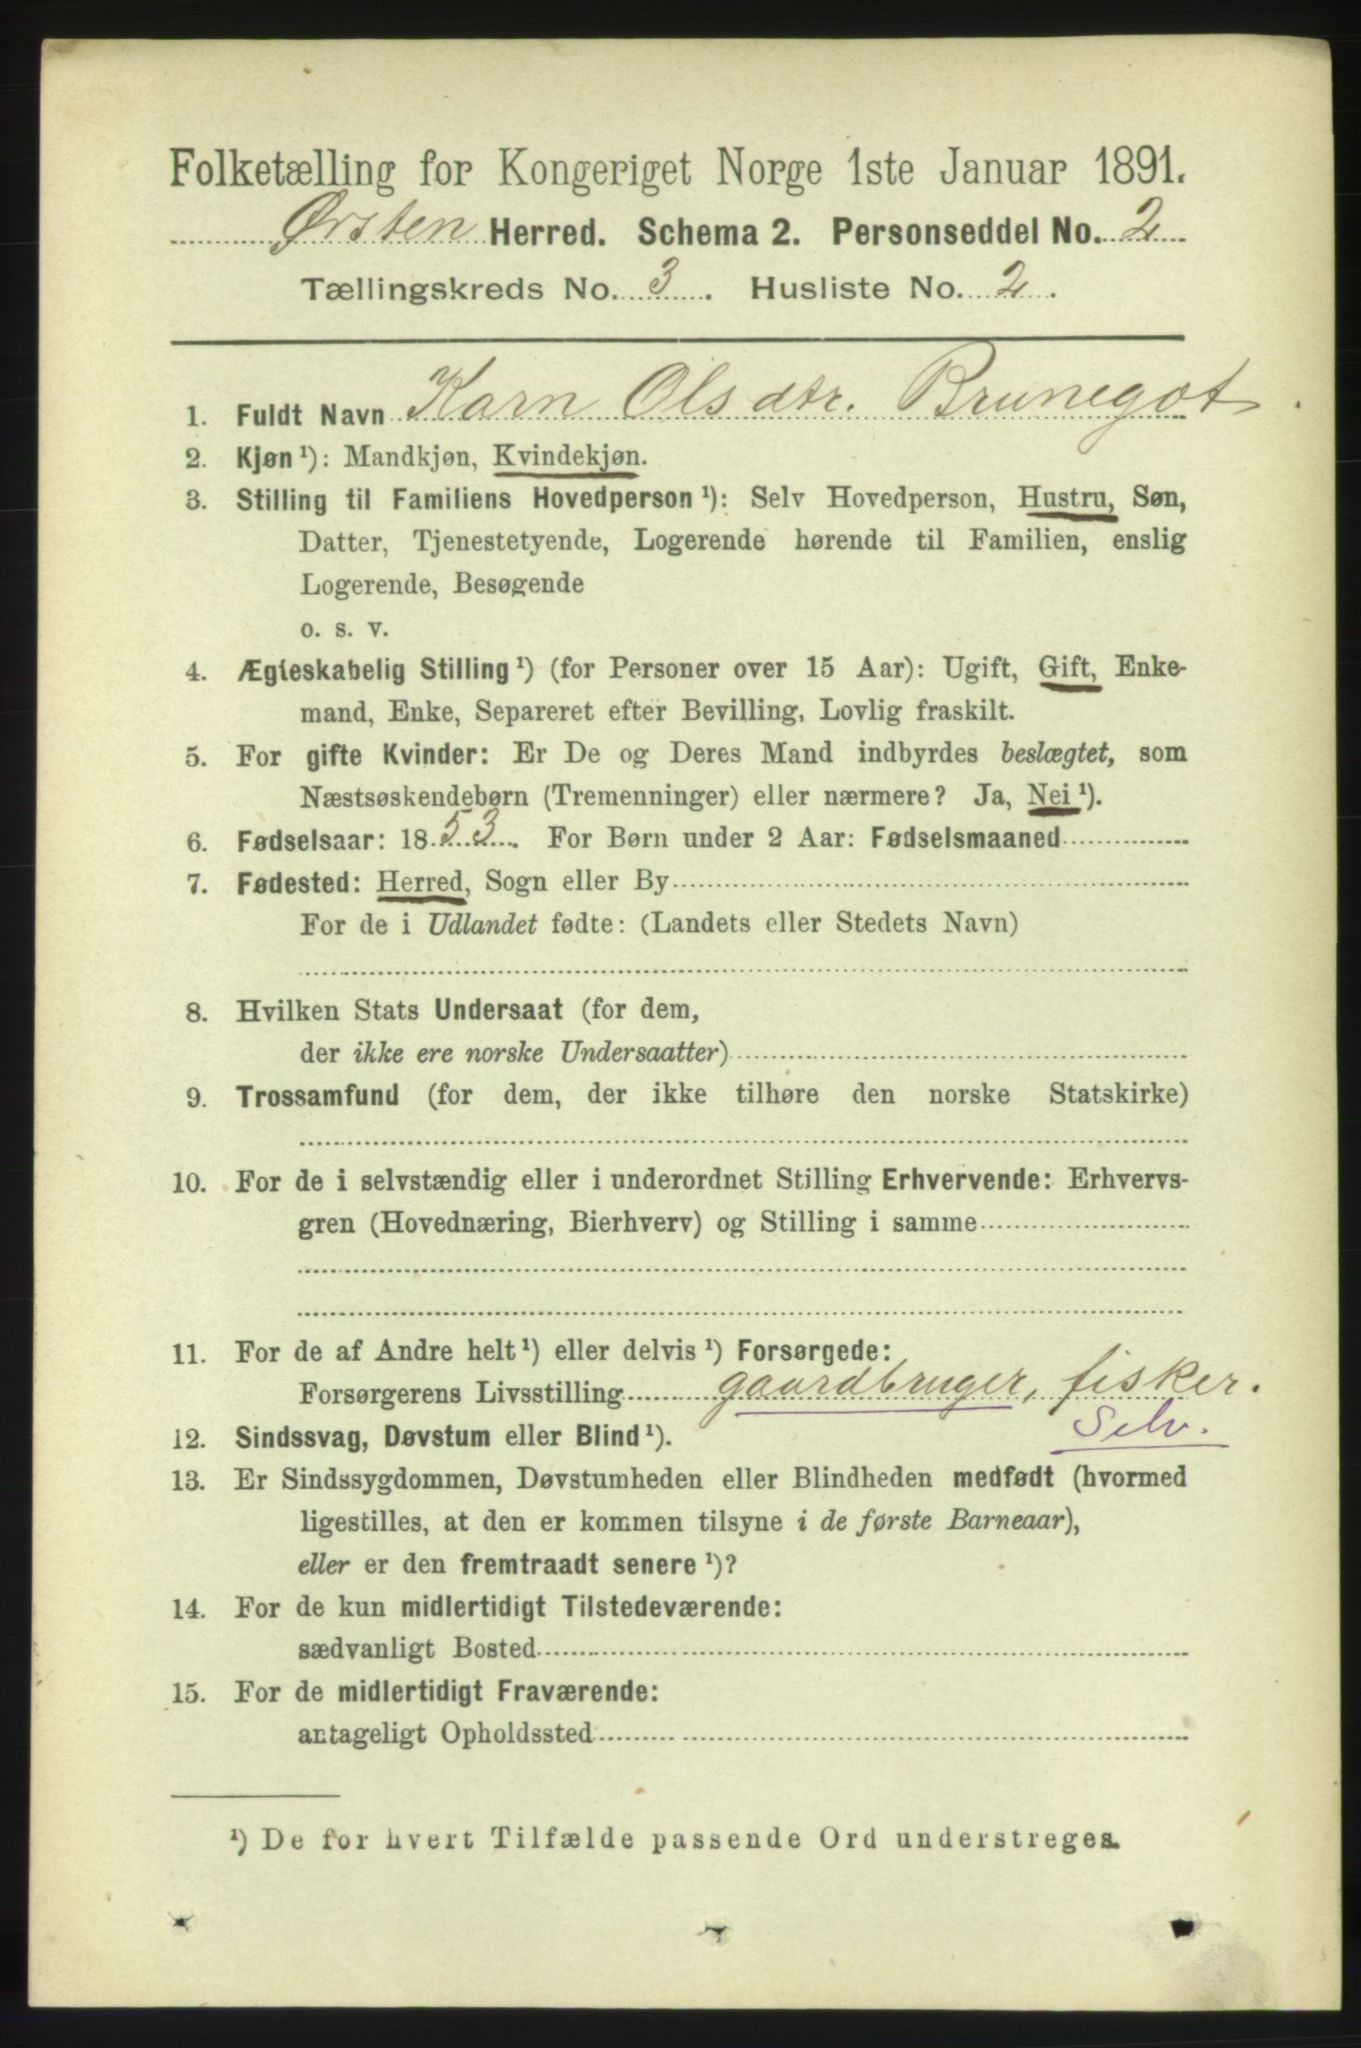 Folketælling for Kongeriget Norge 1ste Januar 1891.
Ørsten Herred. Schema 2. Personseddel No. 2
Tællingskreds No. 3. Husliste No. 2.
1. Fuldt Navn Karn Olsdtr. Brunegot.
2. Kjøn¹): Mandkjøn, Kvindekjøn.
3. Stilling til Familiens Hovedperson¹): Selv Hovedperson, Hustru, Søn,
Datter, Tjenestetyende, Logerende hørende til Familien, enslig
Logerende, Besøgende
o. s. v.
4. Ægteskabelig Stilling¹) (for Personer over 15 Aar): Ugift, Gift, Enke-
mand, Enke, Separeret efter Bevilling, Lovlig fraskilt.
5. For gifte Kvinder: Er De og Deres Mand indbyrdes beslægtet, som
Næstsøskendebørn (Tremenninger) eller nærmere? Ja, Nei¹).
6. Fødselsaar: 1853. For Børn under 2 Aar: Fødselsmaaned
7. Fødested: Herred, Sogn eller By
For de i Udlandet fødte: (Landets eller Stedets Navn)
8. Hvilken Stats Undersaat (for dem,
der ikke ere norske Undersaatter)
9. Trossamfund (for dem, der ikke tilhøre den norske Statskirke)
10. For de i selvstændig eller i underordnet Stilling Erhvervende: Erhvervs-
gren (Hovednæring, Bierhverv) og Stilling i samme
11. For de af Andre helt¹) eller delvis¹) Forsørgede:
Forsørgerens Livsstilling gaardbruger, fisker.
Selv.
12. Sindssvag, Døvstum eller Blind¹).
13. Er Sindssygdommen, Døvstumheden eller Blindheden medfødt (hvormed
ligestilles, at den er kommen tilsyne i de første Barneaar),
eller er den fremtraadt senere¹)?
14. For de kun midlertidigt Tilstedeværende:
sædvanligt Bosted
15. For de midlertidigt Fraværende:
antageligt Opholdssted
¹) De for hvert Tilfælde passende Ord understreges.